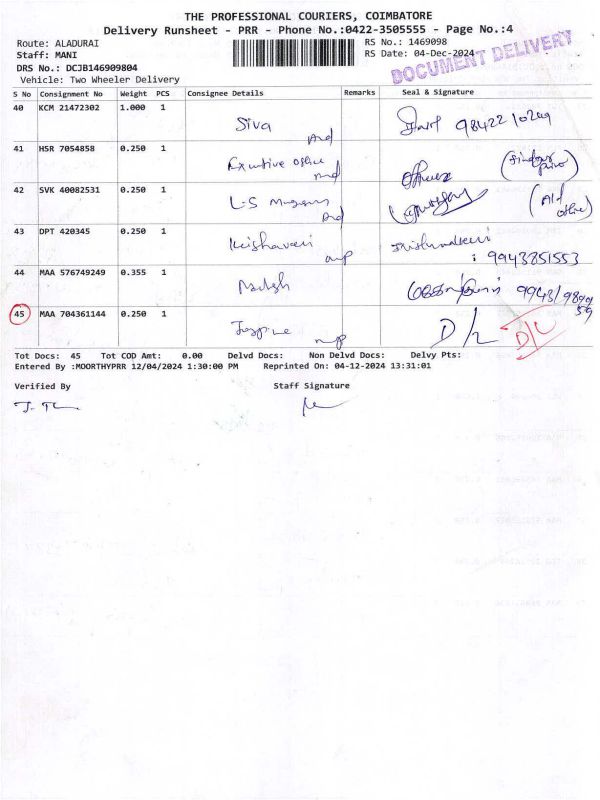 THE PROFESSIONAL COURIERS, COIMBATORE
Delivery Runsheet - PRR - Phone No.:0422-3505555 - Page No.:4
Route: ALADURAI RS No.: 1469098
Staff: MANI RS Date: 04-Dec-2024
DOCUMENT DELIVERY
DRS No.: DCJB146909804
Vehicle: Two Wheeler Delivery
S No Consignment No Weight PCS Consignee Details Remarks Seal & Signature
40 KCM 21472302 1.000 1
Siva
41 HSR 7054858 0.250 1
Office
42 SVK 40082531 0.250 1
L-S
43 DPT 420345 0.250 1
: 9943851553
44 MAA 576749249 0.355 1
45 MAA 704361144 0.250 1
D/L D/L
Tot Docs: 45 Tot COD Amt: 0.00 Delvd Docs: Non Delvd Docs: Delvy Pts:
Entered By :MOORTHYPRR 12/04/2024 1:30:00 PM Reprinted On: 04-12-2024 13:31:01
Verified By Staff Signature